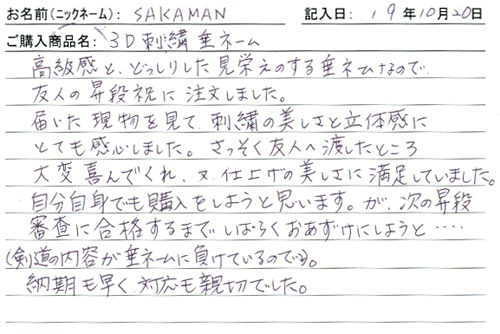 お名前(ニックネーム): SAKAMAN 記入日: 19年10月20日
ご購入商品名: 3D刺繍垂ネーム
高級感と、どっしりした見栄えのする垂ネームなので
友人の昇段祝に注文しました。
届いた現物を見て、刺繍の美しさと立体感に
とても感心しました。さっそく友人へ渡したところ
大変喜んでくれ、又、仕上げの美しさに満足していました。
自分自身でも購入をしようと思います。が、次の昇段
審査に合格するまでしばらくおあずけにしようと‥‥
(剣道の内容が垂ネームに負けているので)。
納期も早く、対応も親切でした。